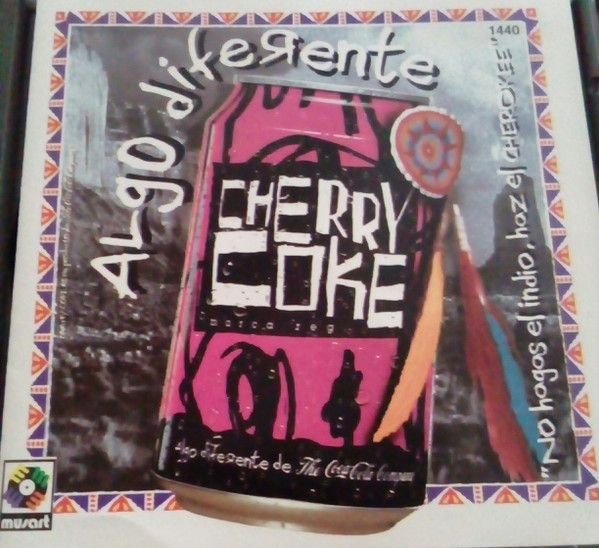 Algo difeRente
1440
"No hagas el indio, haz el CHEROKEE"
CHERRY
COKE
marca reg.
Algo difeRente de The Coca-Cola Company
musart